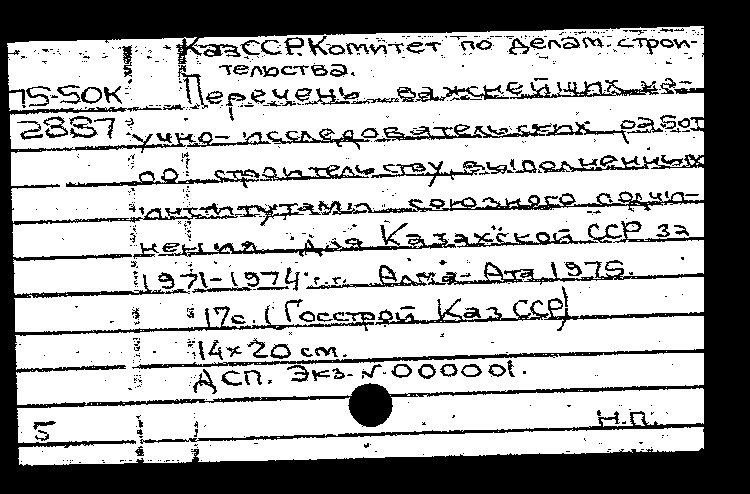 КазССР. Комитет по делам строи-
тельства.
75-50К Перечень важнейших на-
2887 учно-исследовательских работ
по строительству, выполненных
институтами союзного подчи-
нения для Казахской ССР за
1971-1974 г.г. Алма-Ата, 1975.
17с. (Госстрой Каз ССР)
14×20 см.
ДСП. Экз. N 000001.
5 Н.П.